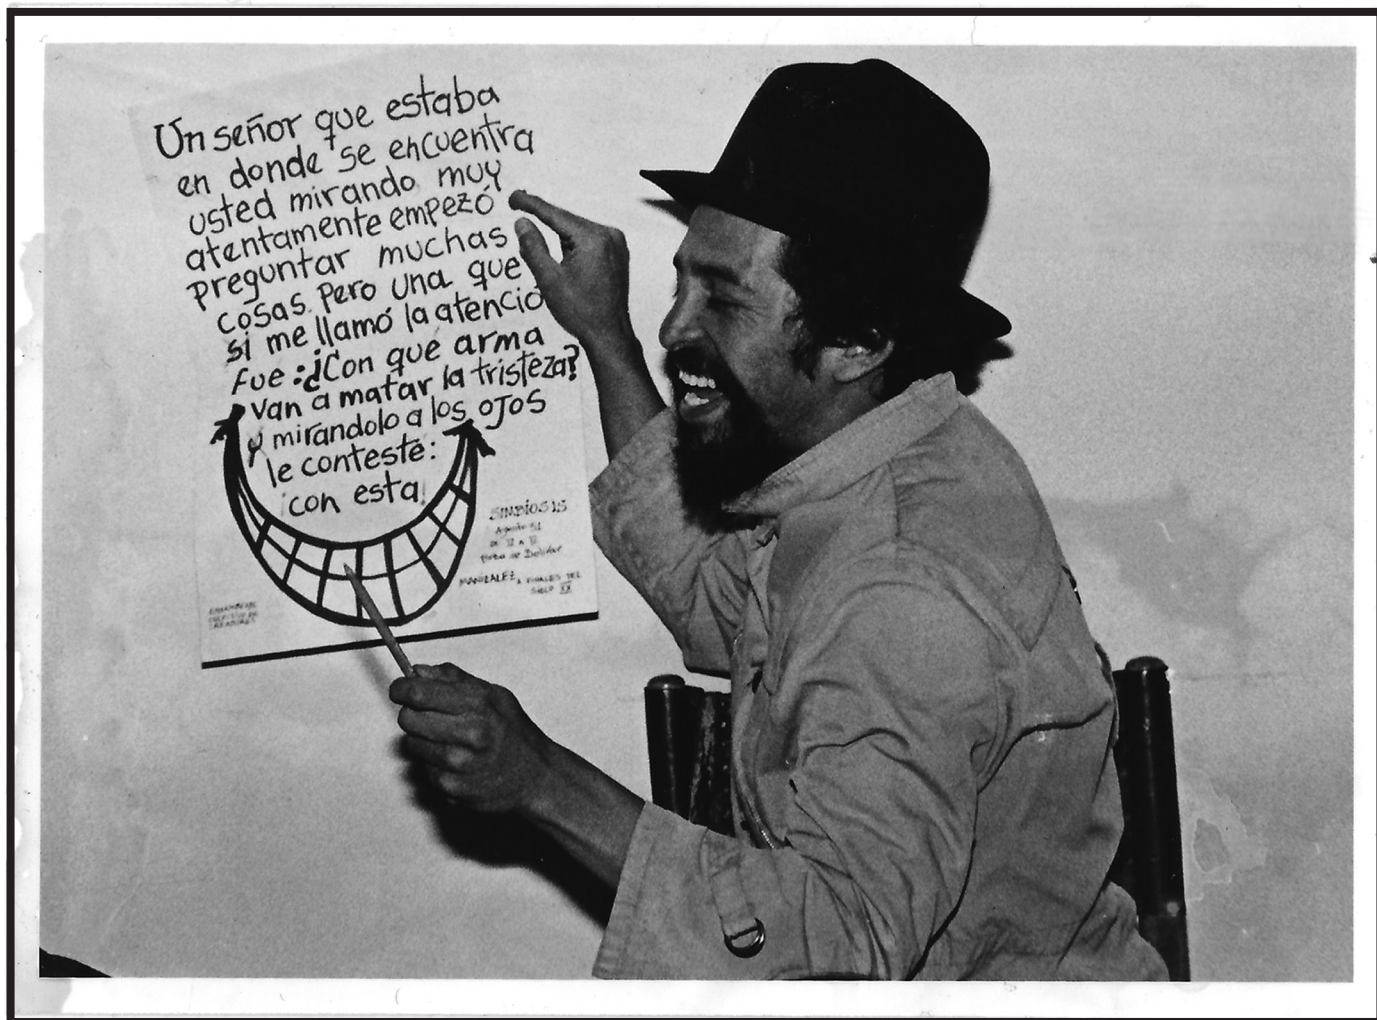 Un señor que estaba
en donde se encuentra
usted mirando muy
atentamente empezó
preguntar muchas
cosas. Pero una que
si me llamó la atenció
fue: ¿Con que arma
van a matar la tristeza?
y mirandolo a los ojos
le conteste:
¡con esta!
SIMBIOSIS
Agosto 31
Plaza de Bolívar
MANIZALEZ, A FINALES DEL
SIGLO XX
COLECTIVO DE
CREADORES